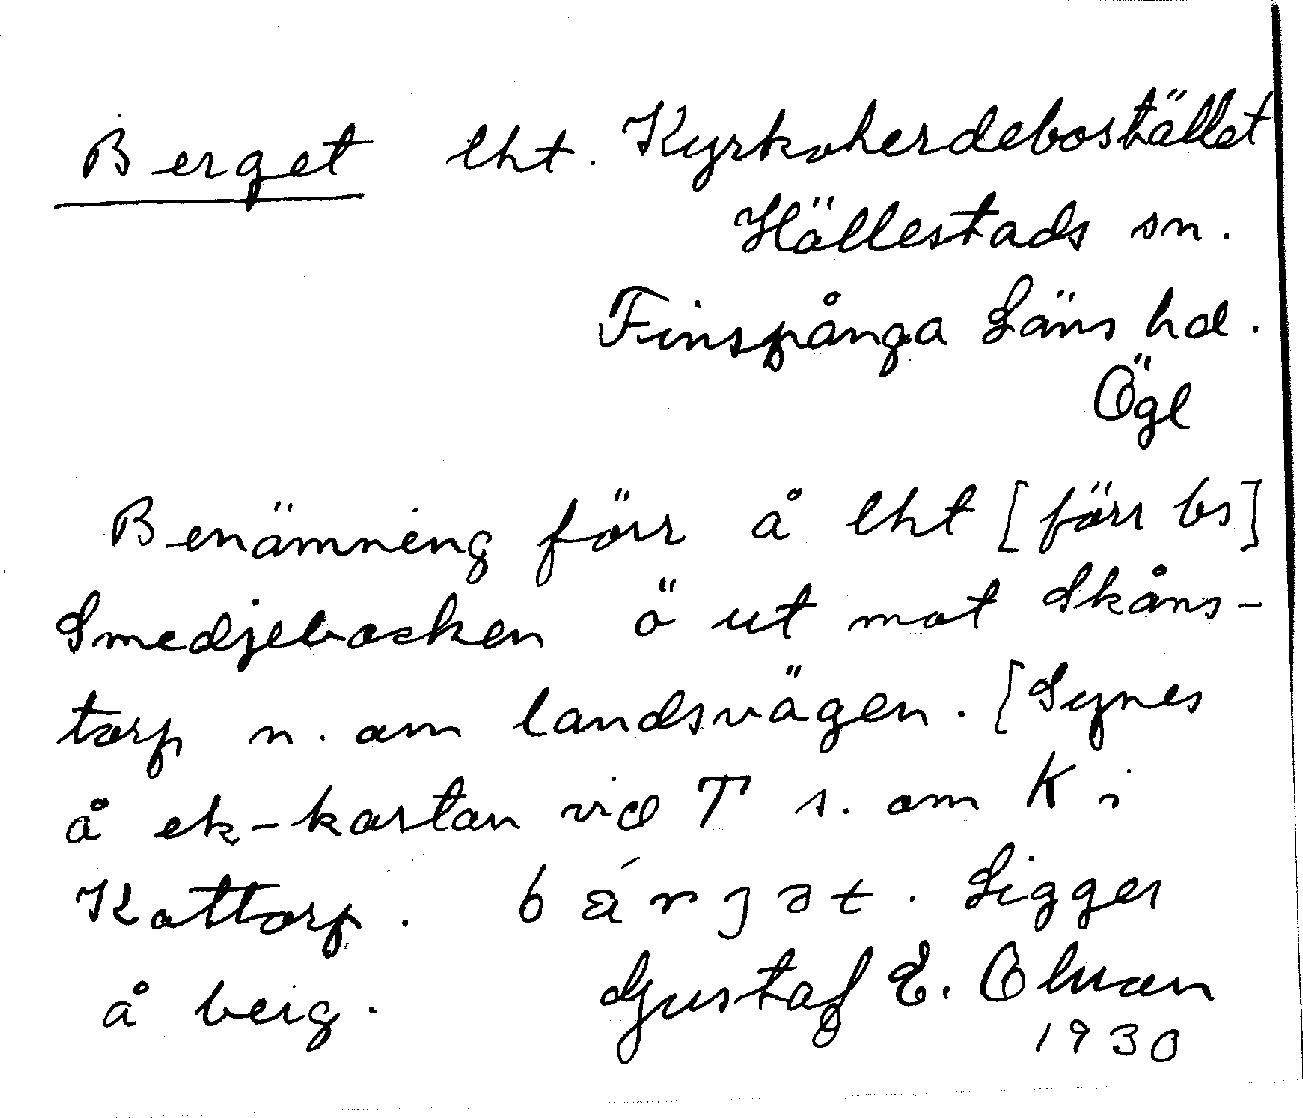 Berget lht. Kyrkoherdebostället
Hällestads sn.
Finspånga Läns hd.
Ögl
Benämning förr å lht [förr bs]
Smedjebacken ö ut mot Skåns-
torp n. om landsvägen. [Synes
å ek-kartan vid T s. om K i
Kattorp. bárjət. Ligger
å berg. Gustaf E. Olman
1930